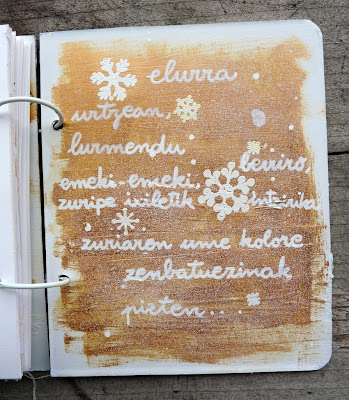 elurra
urtzean,
lurmendu
berriro,
emeki-emeki,
zuripe ixiletik
zuriaren ume kolore
zenbatuezinak
pizten...